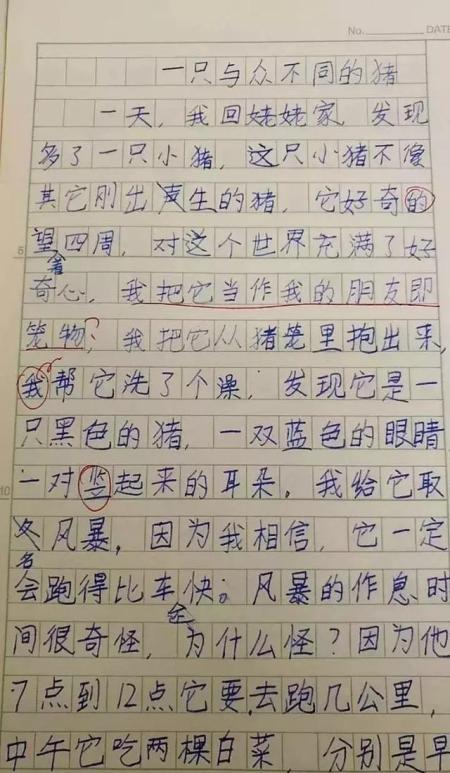 No.
DATE
一只与众不同的猪
一天，我回姥姥家，发现
多了一只小猪，这只小猪不像
其它刚出生的猪，它好奇的
望四周，对这个世界充满了好
着
奇心，我把它当作我的朋友即
宠物，？我把它从猪笼里抱出来，
我帮它洗了个澡，发现它是一
只黑色的猪，一双蓝色的眼睛
一对竖起来的耳朵。我给它取
名
风暴，因为我相信，它一定
会跑得比车快。风暴的作息时
间很奇怪，为什么怪？因为他
7点到12点它要去跑几公里，
中午它吃两棵白菜，分别是早
5
10